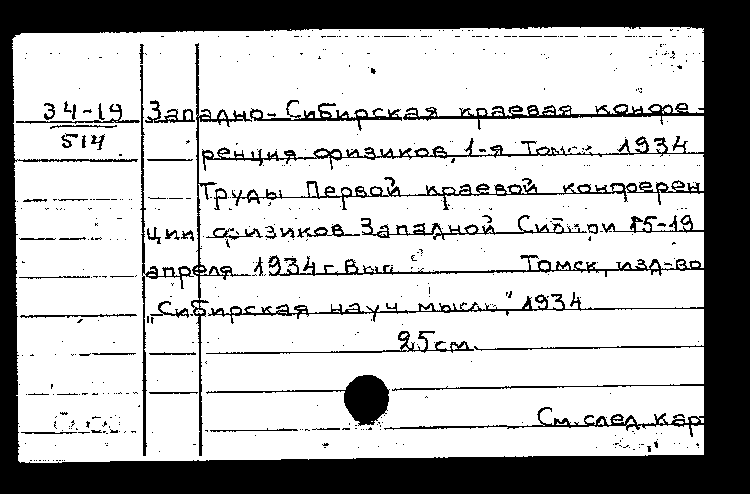 34-19 Западно-Сибирская краевая конфе-
514 ренция физиков, 1-я Томск. 1934
Труды Первой краевой конферен
ции физиков Западной Сибири 15-19
апреля 1934 г. Вып Томск, изд-во
„Сибирская науч. мысль", 1934
25см.
См. след. кар